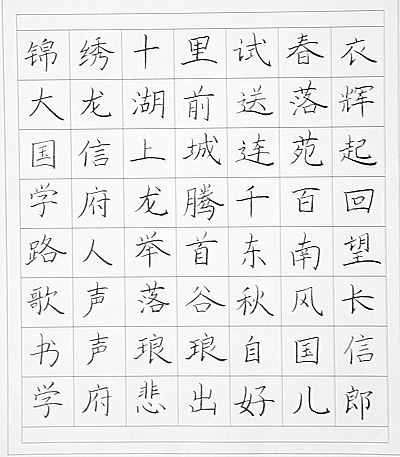 锦绣十里试春衣
大龙湖前送落辉
国信上城连苑起
学府龙腾千百回
路人举首东南望
歌声落谷秋风长
书声琅琅自国信
学府悲出好儿郎